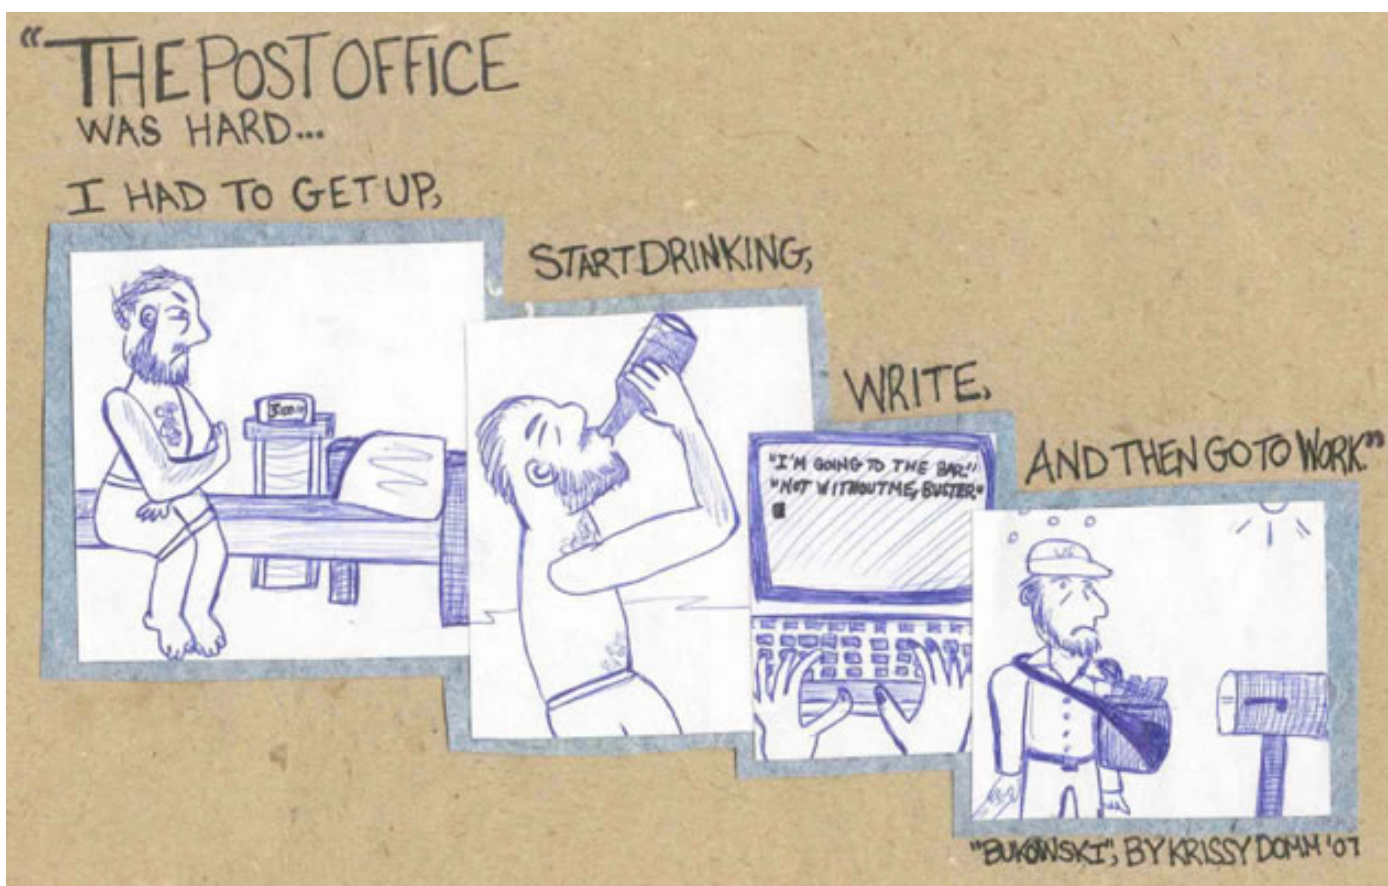 "THE POST OFFICE
WAS HARD...
I HAD TO GET UP,
START DRINKING,
WRITE,
"I'M GOING TO THE BAR."
"NOT WITHOUT ME, BUSTER"
AND THEN GO TO WORK."
US
"BUKOWSKI", BY KRISSY DOMM '07